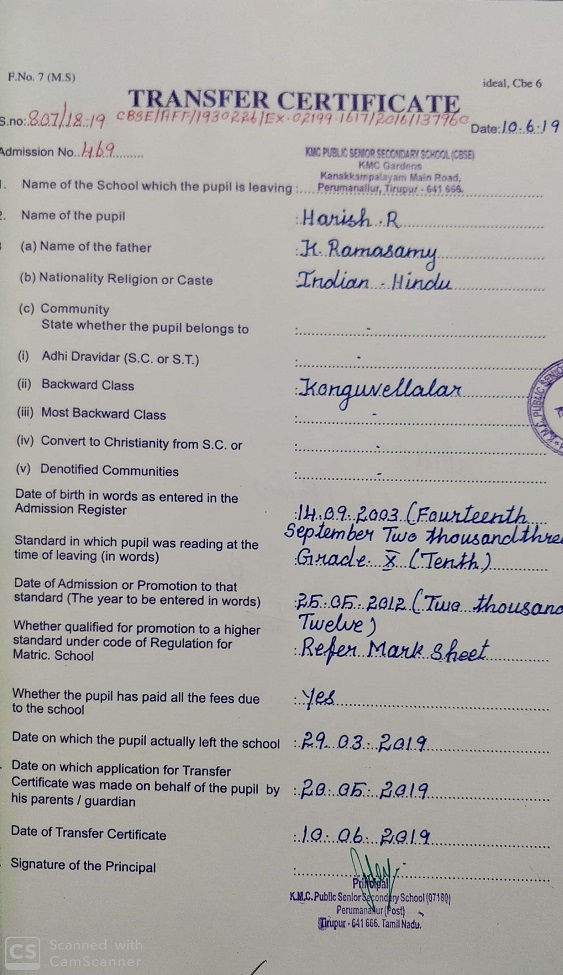 F.No. 7 (M.S)
ideal, Cbe 6
TRANSFER CERTIFICATE
S.no: 807/18-19 CBSE/AFF/1930226/EX-02199-1617/2016/137960 Date: 10.6.19
Admission No. 469
KMC PUBLIC SENIOR SECONDARY SCHOOL (CBSE)
KMC Gardens
Kanakkampalayam Main Road,
1. Name of the School which the pupil is leaving : Perumanallur, Tirupur - 641 666.
2. Name of the pupil : Harish . R
(a) Name of the father : K. Ramasamy
(b) Nationality Religion or Caste : Indian - Hindu
(c) Community
State whether the pupil belongs to : -
(i) Adhi Dravidar (S.C. or S.T.) : -
(ii) Backward Class : Konguvellalar
(iii) Most Backward Class : -
(iv) Convert to Christianity from S.C. or : -
(v) Denotified Communities : -
Date of birth in words as entered in the
Admission Register : 14.09.2003 (Fourteenth
September Two thousand three
Standard in which pupil was reading at the
time of leaving (in words) : Grade X (Tenth)
Date of Admission or Promotion to that
standard (The year to be entered in words) : 25.05.2012 (Two thousand
Twelve)
Whether qualified for promotion to a higher
standard under code of Regulation for : Refer Mark Sheet
Matric. School
Whether the pupil has paid all the fees due : Yes
to the school
Date on which the pupil actually left the school : 29.03.2019
Date on which application for Transfer
Certificate was made on behalf of the pupil by : 20.05.2019
his parents / guardian
Date of Transfer Certificate : 10.06.2019
Signature of the Principal :
Principal
K.M.C. Public Senior Secondary School (07180)
Perumanallur (Post)
Tirupur - 641 666. Tamil Nadu.
K.M.C. PUBLIC SENIOR
CS Scanned with
CamScanner